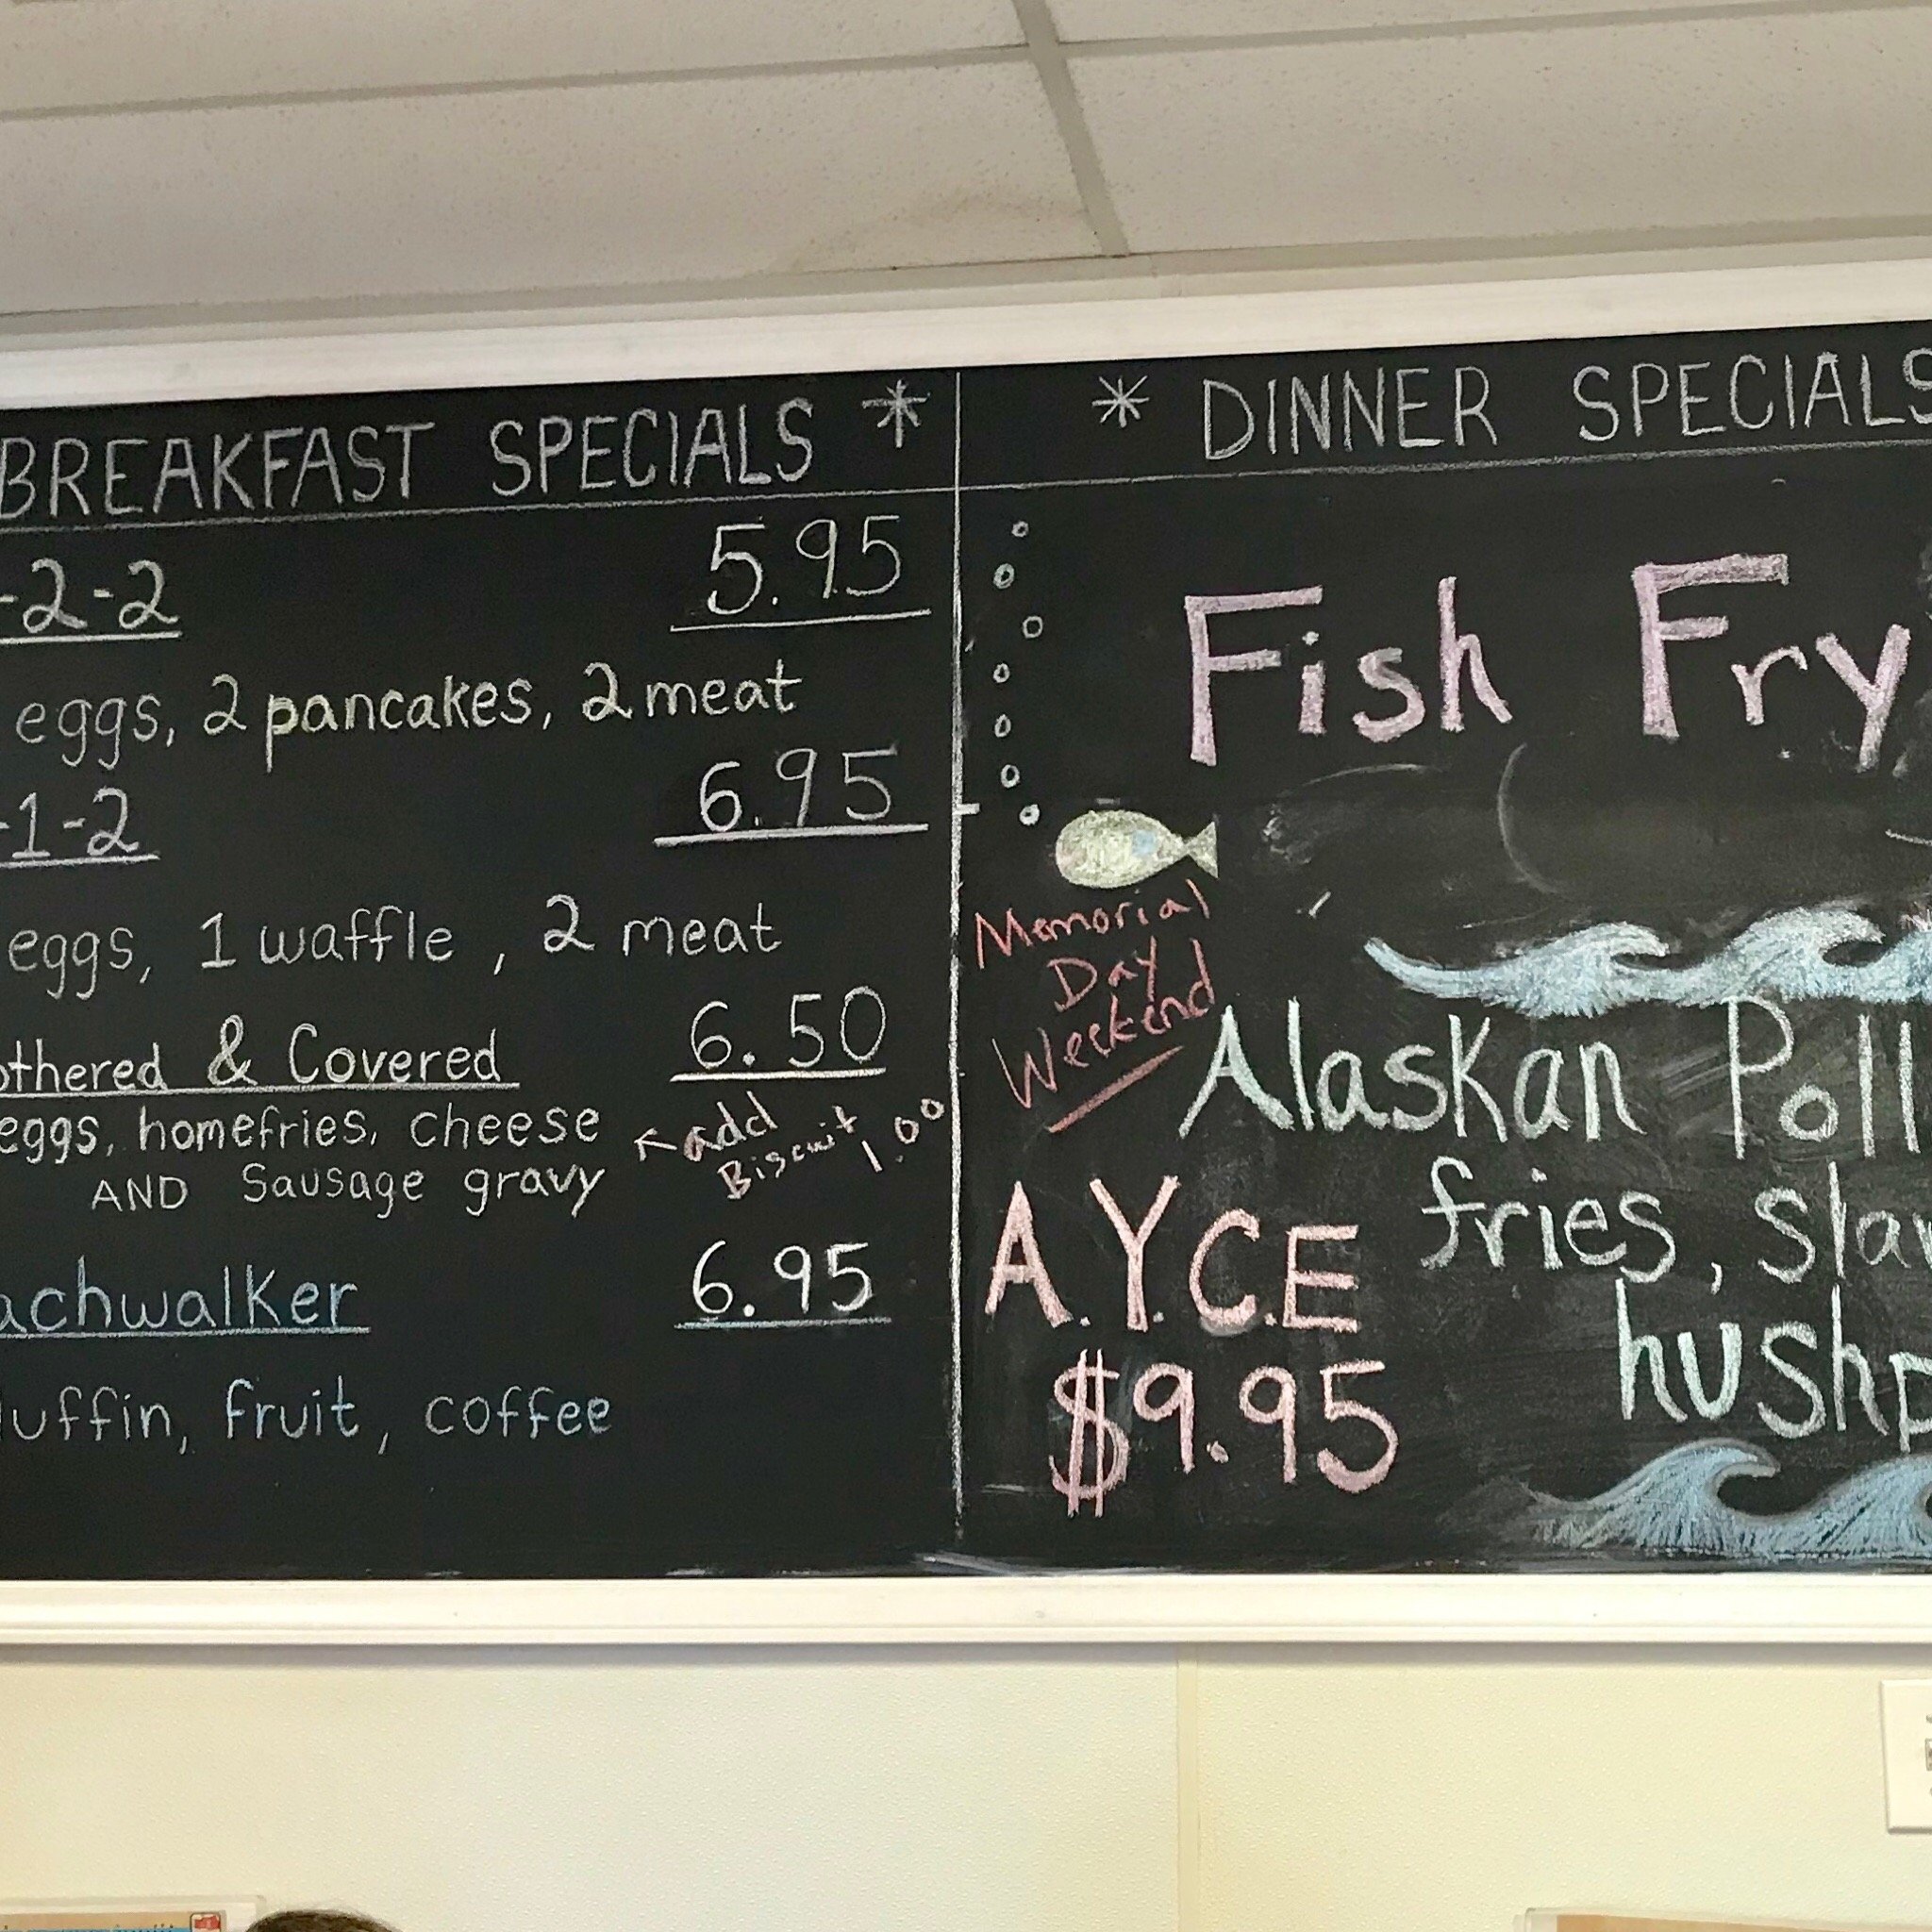 BREAKFAST SPECIALS *
-2-2 5.95
eggs, 2 pancakes, 2 meat
-1-2 6.95
eggs, 1 waffle, 2 meat
othered & Covered 6.50
eggs, homefries, cheese
AND Sausage gravy
add
Biscuit 1.00
achwalker 6.95
uffin, fruit, coffee
* DINNER SPECIALS
Fish Fry
Memorial
Day
Weekend
Alaskan Poll
fries, slaw
hushp
A.Y.C.E
$9.95